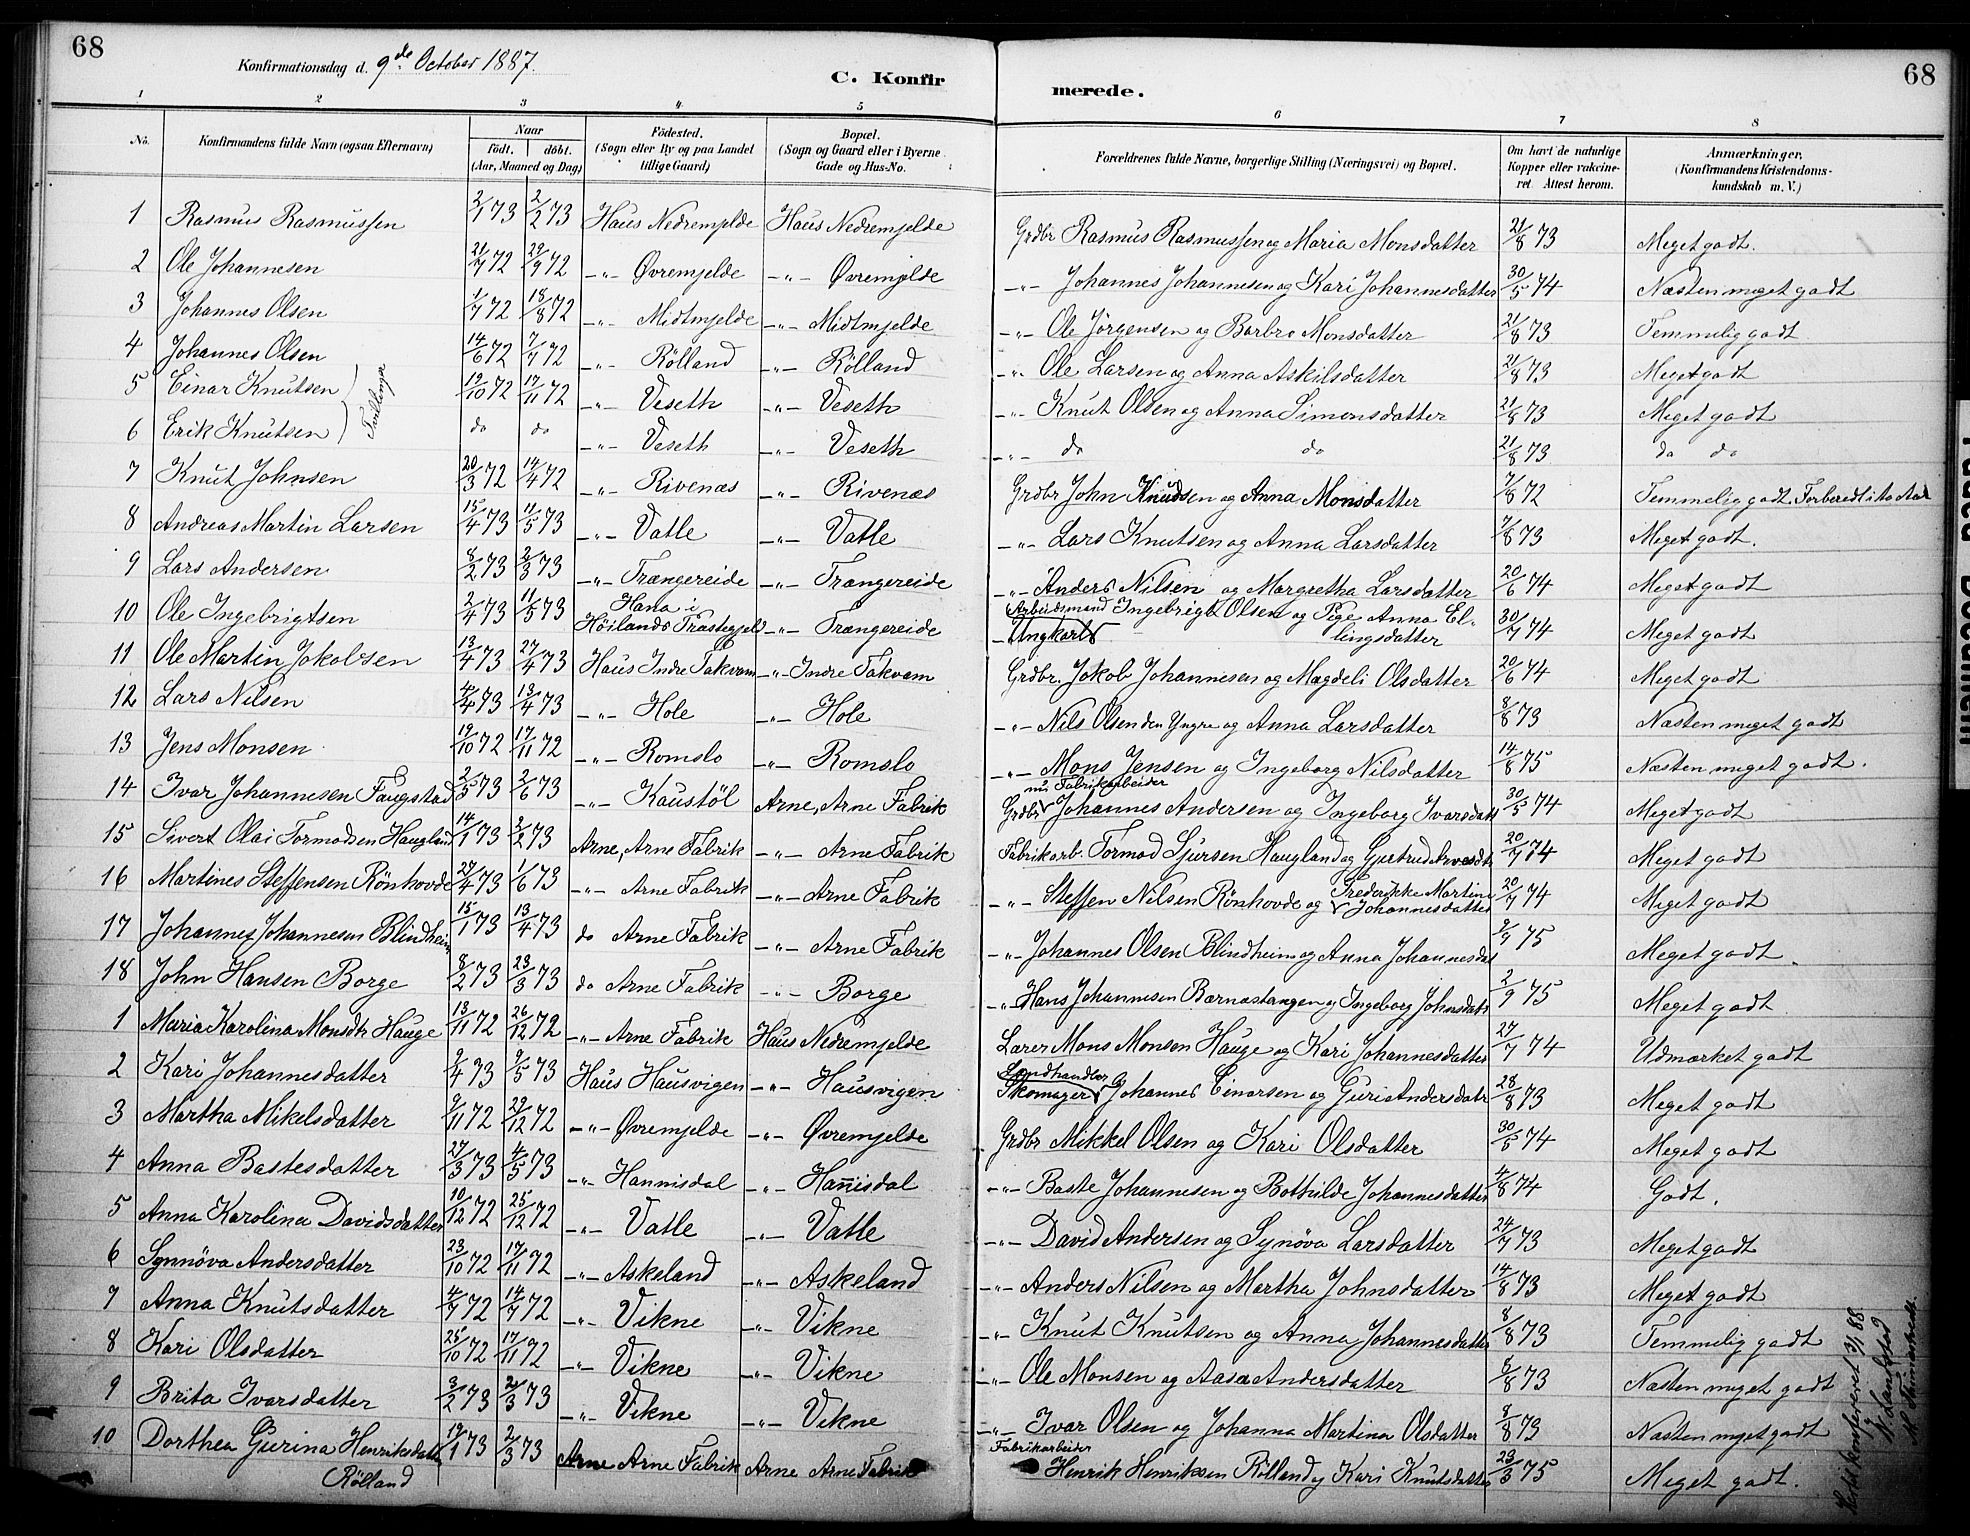 68
Konfirmationsdag d. 9de October 1887.
C. Konfirmerede.
68
1 2 3 4 5 6 7 8
No.
Konfirmandens fulde Navn (ogsaa Efternavn)
Naar
födt. döbt.
(Aar, Maaned og Dag)
Födested.
(Sogn eller By og paa Landet
tillige Gaard)
Bopæl.
(Sogn og Gaard eller i Byerne
Gade og Hus-No.
Forældrenes fulde Navne, borgerlige Stilling (Næringsvei) og Bopæl.
Om havt de naturlige
Kopper eller vakcine-
ret. Attest herom.
Anmærkninger.
(Konfirmandens Kristendoms-
kundskab m. V.)
1 Rasmus Rasmussen 2/1 73 2/2 73 Haus Nedremjelde Haus Nedremjelde Grdbr Rasmus Rasmussen og Maria Monsdatter 21/8 73 Meget godt.
2 Ole Johannesen 21/7 72 29/9 72 -"- Øvremjelde -"- Øvremjelde -"- Johannes Johannesen og Kari Johannesdatter 30/5 74 Næsten meget godt
3 Johannes Olsen 1/7 72 18/8 72 -"- Midtmjelde -"- Midtmjelde -"- Ole Jörgensen og Barbro Monsdatter 21/8 73 Temmelig godt.
4 Johannes Olsen 14/6 72 7/7 72 -"- Rölland -"- Rölland -"- Ole Larsen og Anna Askilsdatter 21/8 73 Meget godt
5 Einar Knutsen 19/10 72 17/11 72 -"- Veseth -"- Veseth -"- Knut Olsen og Anna Simonsdatter 21/8 73 Meget godt
Tvillinger
6 Erik Knutsen do do -"- Veseth -"- Veseth -"- do do 21/8 73 do do
7 Knut Johnsen 20/3 72 14/4 72 -"- Rivenæs -"- Rivenæs Grdbr John Knudsen og Anna Monsdatter 7/8 72 Temmelig godt.
8 Andreas Martin Larsen 15/4 73 11/5 73 -"- Vatle -"- Vatle -"- Lars Knutsen og Anna Larsdatter 7/8 73 Meget godt.
9 Lars Andersen 8/2 73 2/3 73 -"- Trængereide -"- Trængereide -"- Anders Nilsen og Margretha Larsdatter 20/6 74 Meget godt
10 Ole Ingebrigtsen 2/4 73 11/5 73 Hana i
Höilands Præstegjeld -"- Trængereide Arbeidsmand Ingebrigt Olsen og Pige Anna El-
-"- Ungkarl lingsdatter 30/7 74 Meget godt
11 Ole Martin Jakobsen 13/4 73 27/4 73 Haus Indre Takvam -"- Indre Takvam Grdbr. Jakob Johannesen og Magdeli Olsdatter 20/6 74 Meget godt
12 Lars Nilsen 4/4 73 13/4 73 -"- Hole -"- Hole -"- Nils Olsen den Yngre og Anna Larsdatter 8/8 73 Næsten meget godt
13 Jens Monsen 19/10 72 17/11 72 -"- Romslo -"- Romslo -"- Mons Jensen og Ingeborg Nilsdatter 14/8 75 Næsten meget godt.
14 Ivar Johannesen Faugstad 2/5 73 2/6 73 -"- Kaustöl Arne, Arne Fabrik nu Fabrikarbeider
Grdbr Johannes Andersen og Ingeborg Ivarsdatt 30/5 74 Meget godt
15 Sivert Olai Tormodsen Haugland 14/1 73 2/2 73 Arne, Arne Fabrik -"- Arne Fabrik Fabrikarb. Tormod Sjursen Haugland og Gjertrud 20/7 74 Meget godt
16 Martines Steffensen Rönhovde 27/4 73 1/6 73 -"- Arne Fabrik -"- Arne Fabrik -"- Steffen Nilsen Rönhovde og Frederikke Martine
Johannesdatter 20/7 74 Meget godt
17 Johannes Johannesen Blindheim 15/1 73 13/4 73 do Arne Fabrik -"- Arne Fabrik -"- Johannes Olsen Blindheim og Anna Johannesdat 75 Meget godt.
18 John Hansen Borge 8/2 73 23/3 73 do Arne Fabrik -"- Borge -"- Hans Johannesen Barnæstangen og Ingeborg Johnsdatr 2/9 75 Meget godt
1 Maria Karolina Monsdtr Hauge 13/11 72 26/12 72 -"- Arne Fabrik Haus Nedremjelde Lærer Mons Monsen Hauge og Kari Johannesdatter 27/7 74 Udmærket godt
2 Kari Johannesdatter 9/4 73 9/5 73 Haus Hausvigen -"- Hausvigen Landhandler
Skomager Johannes Einarsen og Guri Andersdatr 28/8 73 Meget godt
3 Martha Mikelsdatter 9/11 72 29/12 72 -"- Øvremjelde -"- Øvremjelde Grdbr Mikkel Olsen og Kari Olsdatter 30/5 74 Meget godt
4 Anna Bastesdatter 27/3 73 4/5 73 -"- Hannisdal -"- Hannisdal -"- Baste Johannesen og Bothilde Johannesdatter 4/8 74 Godt.
5 Anna Karolina Davidsdatter 10/12 72 25/12 72 -"- Vatle -"- Vatle -"- David Andersen og Synöva Larsdatter 24/7 73 Meget godt
6 Synnöva Andersdatter 23/10 72 17/11 72 -"- Askeland -"- Askeland -"- Anders Nilsen og Martha Johnsdatter 14/8 73 Meget godt
7 Anna Knutsdatter 4/7 72 14/7 72 -"- Vikne -"- Vikne -"- Knut Knutsen og Anna Johannesdatter 8/8 73 Temmelig godt
8 Kari Olsdatter 25/10 72 17/11 72 -"- Vikne -"- Vikne -"- Ole Monsen og Aasa Andersdatter 8/8 73 Næsten meget godt
9 Brita Ivarsdatter 3/2 73 2/3 73 -"- Vikne -"- Vikne -"- Ivar Olsen og Johanna Martina Olsdatter 8/8 73 Næsten meget godt
10 Dorthea Gurina Henriksdatter
Rölland 19/1 73 2/3 73 Arne Arne Fabrik Arne Arne Fabrik Fabrikarbeider
Henrik Henriksen Rölland og Kari Knutsdatter 23/3 75 Meget godt.